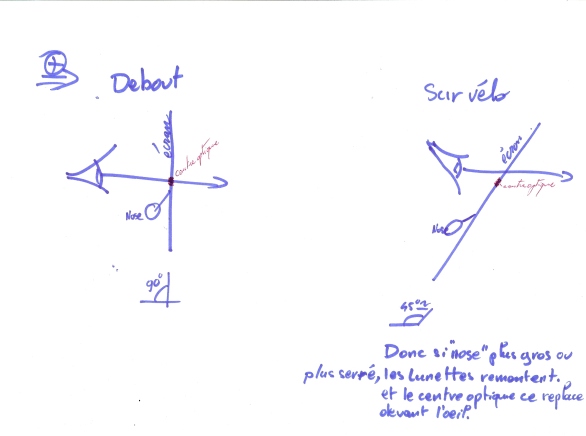 Debout
écran
centre optique
Nose
90°
Sur vélo
écran
centre optique
Nose
45°
Donc si "nose" plus gros ou
plus serré, les lunettes remontent.
et le centre optique ce replace
devant l'oeil.